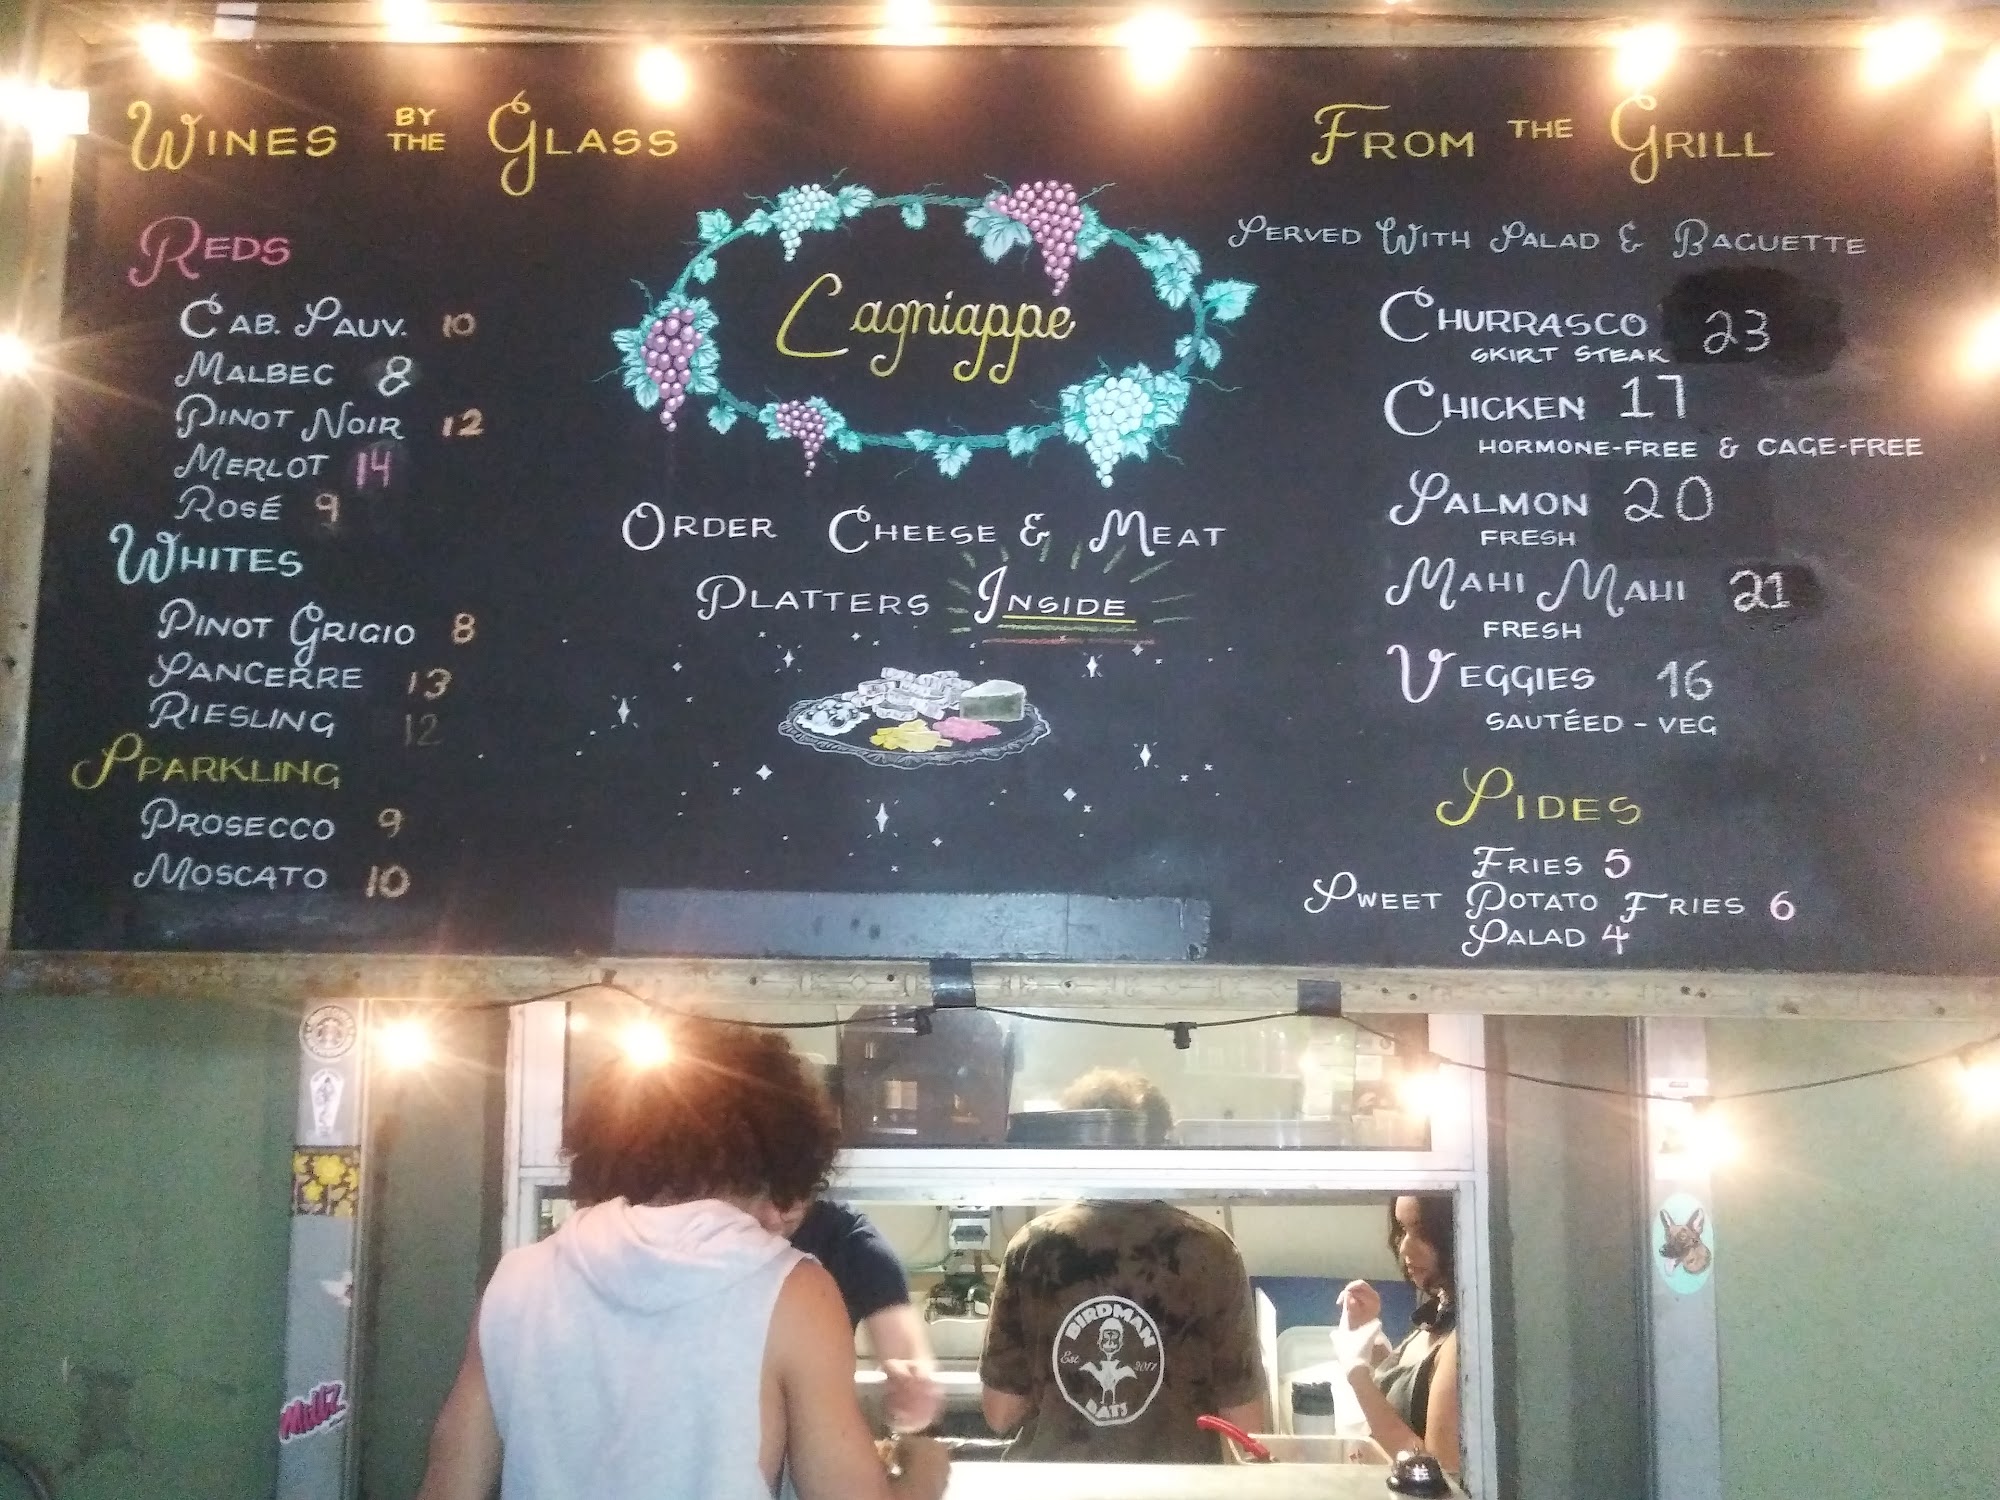 WINES BY THE GLASS
REDS
CAB. SAUV. 10
MALBEC 8
PINOT NOIR 12
MERLOT 14
ROSÉ 9
WHITES
PINOT GRIGIO 8
SANCERRE 13
RIESLING 12
SPARKLING
PROSECCO 9
MOSCATO 10
Lagniappe
ORDER CHEESE & MEAT
PLATTERS INSIDE
FROM THE GRILL
SERVED WITH SALAD & BAGUETTE
CHURRASCO 23
SKIRT STEAK
CHICKEN 17
HORMONE-FREE & CAGE-FREE
SALMON 20
FRESH
MAHI MAHI 21
FRESH
VEGGIES 16
SAUTÉED - VEG
SIDES
FRIES 5
SWEET POTATO FRIES 6
SALAD 4
BIRDMAN
Est 2017
BATS